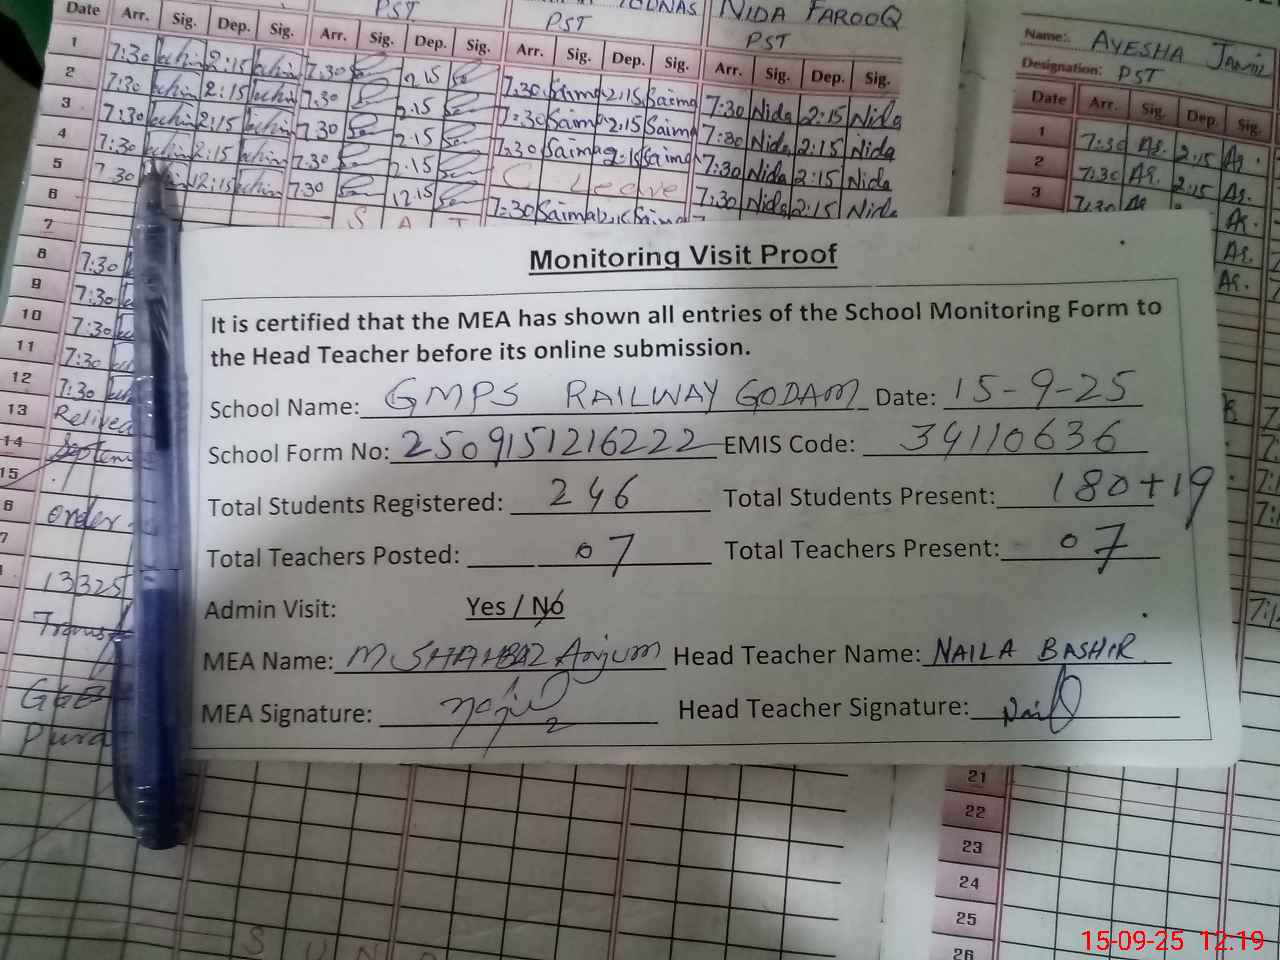 NIDA FAROOQ
PST PST PST
Date Arr. Sig. Dep. Sig. Arr. Sig. Dep. Sig. Arr. Sig. Dep. Sig. Arr. Sig. Dep. Sig.
1 7:30 2:15 7:30 2:15 7:30 Saima 2:15 Saima 7:30 Nida 2:15 Nida
2 7:30 2:15 7:30 2:15 7:30 Saima 2:15 Saima 7:30 Nida 2:15 Nida
3 7:30 2:15 7:30 2:15 7:30 Saima 2:15 Saima 7:30 Nida 2:15 Nida
4 7:30 2:15 7:30 2:15 C. Leave 7:30 Nida 2:15 Nida
5 7:30 12:15 7:30 12:15 7:30 Saima 12:15 Saima 7:30 Nida 2:15 Nida
6
7 S A T
8 7:30
9 7:30
10 7:30
11 7:30
12 7:30
13 Relived
14
15
order
13325
Name: AYESHA Jamil
Designation: PST
Date Arr. Sig. Dep. Sig.
1 7:30 As. 2:15 As.
2 7:30 As. 2:15 As.
3 7:30 As
Monitoring Visit Proof
It is certified that the MEA has shown all entries of the School Monitoring Form to
the Head Teacher before its online submission.
School Name: GMPS RAILWAY GODAM Date: 15-9-25
School Form No: 2509151216222 EMIS Code: 34110636
Total Students Registered: 246 Total Students Present: 180+19
Total Teachers Posted: 07 Total Teachers Present: 07
Admin Visit: Yes / No
MEA Name: M SHAHBAZ Anjum Head Teacher Name: NAILA BASHIR
MEA Signature: Head Teacher Signature: Naila
21
22
23
24
25
26
S U N
15-09-25 12:19